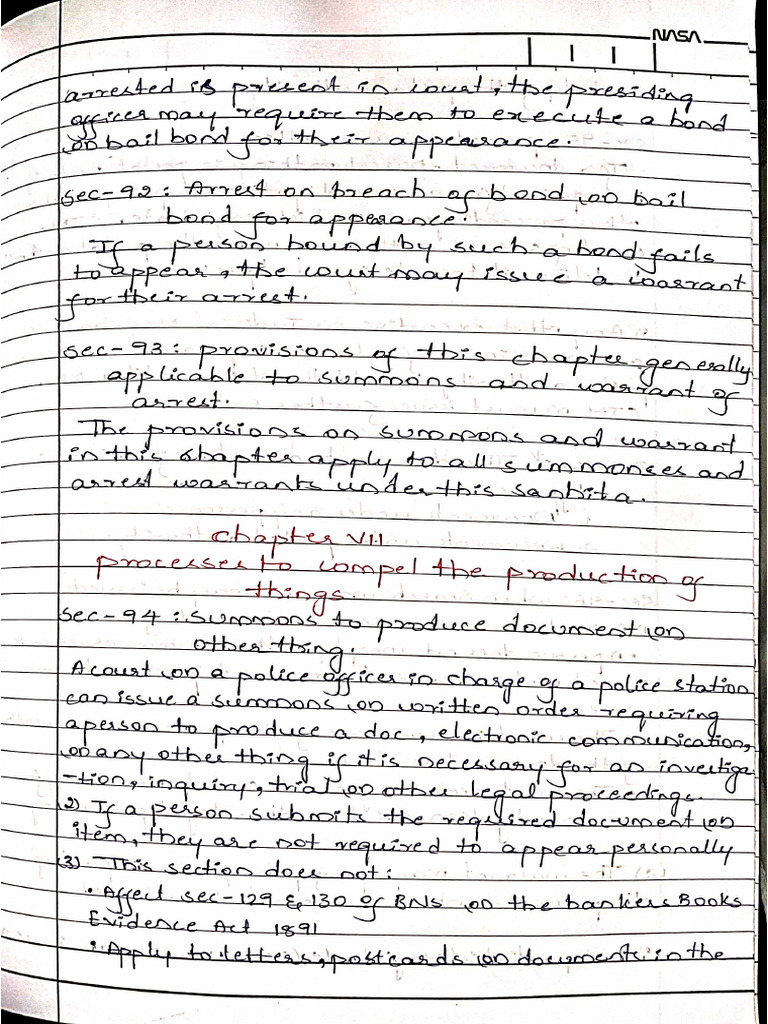 NASA
arrested is present in court, the presiding
officer may require them to execute a bond
or bail bond for their appearance.
Sec-92: Arrest on breach of bond or bail
bond for apperance.
If a person bound by such a bond fails
to appear, the court may issue a warrant
for their arrest.
Sec-93: provisions of this chapter generally
applicable to summons and warrant of
arrest.
The provisions on summons and warrant
in this chapter apply to all summonses and
arrest warrants under this Sanhita.
Chapter VII
processes to compel the production of
things
Sec-94: Summons to produce document or
other thing.
A court or a police officer in charge of a police station
can issue a summons or written order requiring
a person to produce a doc, electronic communication,
or any other thing if it is necessary for an investiga
-tion, inquiry, trial or other legal proceedings.
2) If a person submits the required document or
item, they are not required to appear personally
3) This section does not:
• Affect sec-129 & 130 of BNS or the bankers Books
Evidence Act 1891
• Apply to letters, postcards or documents in the